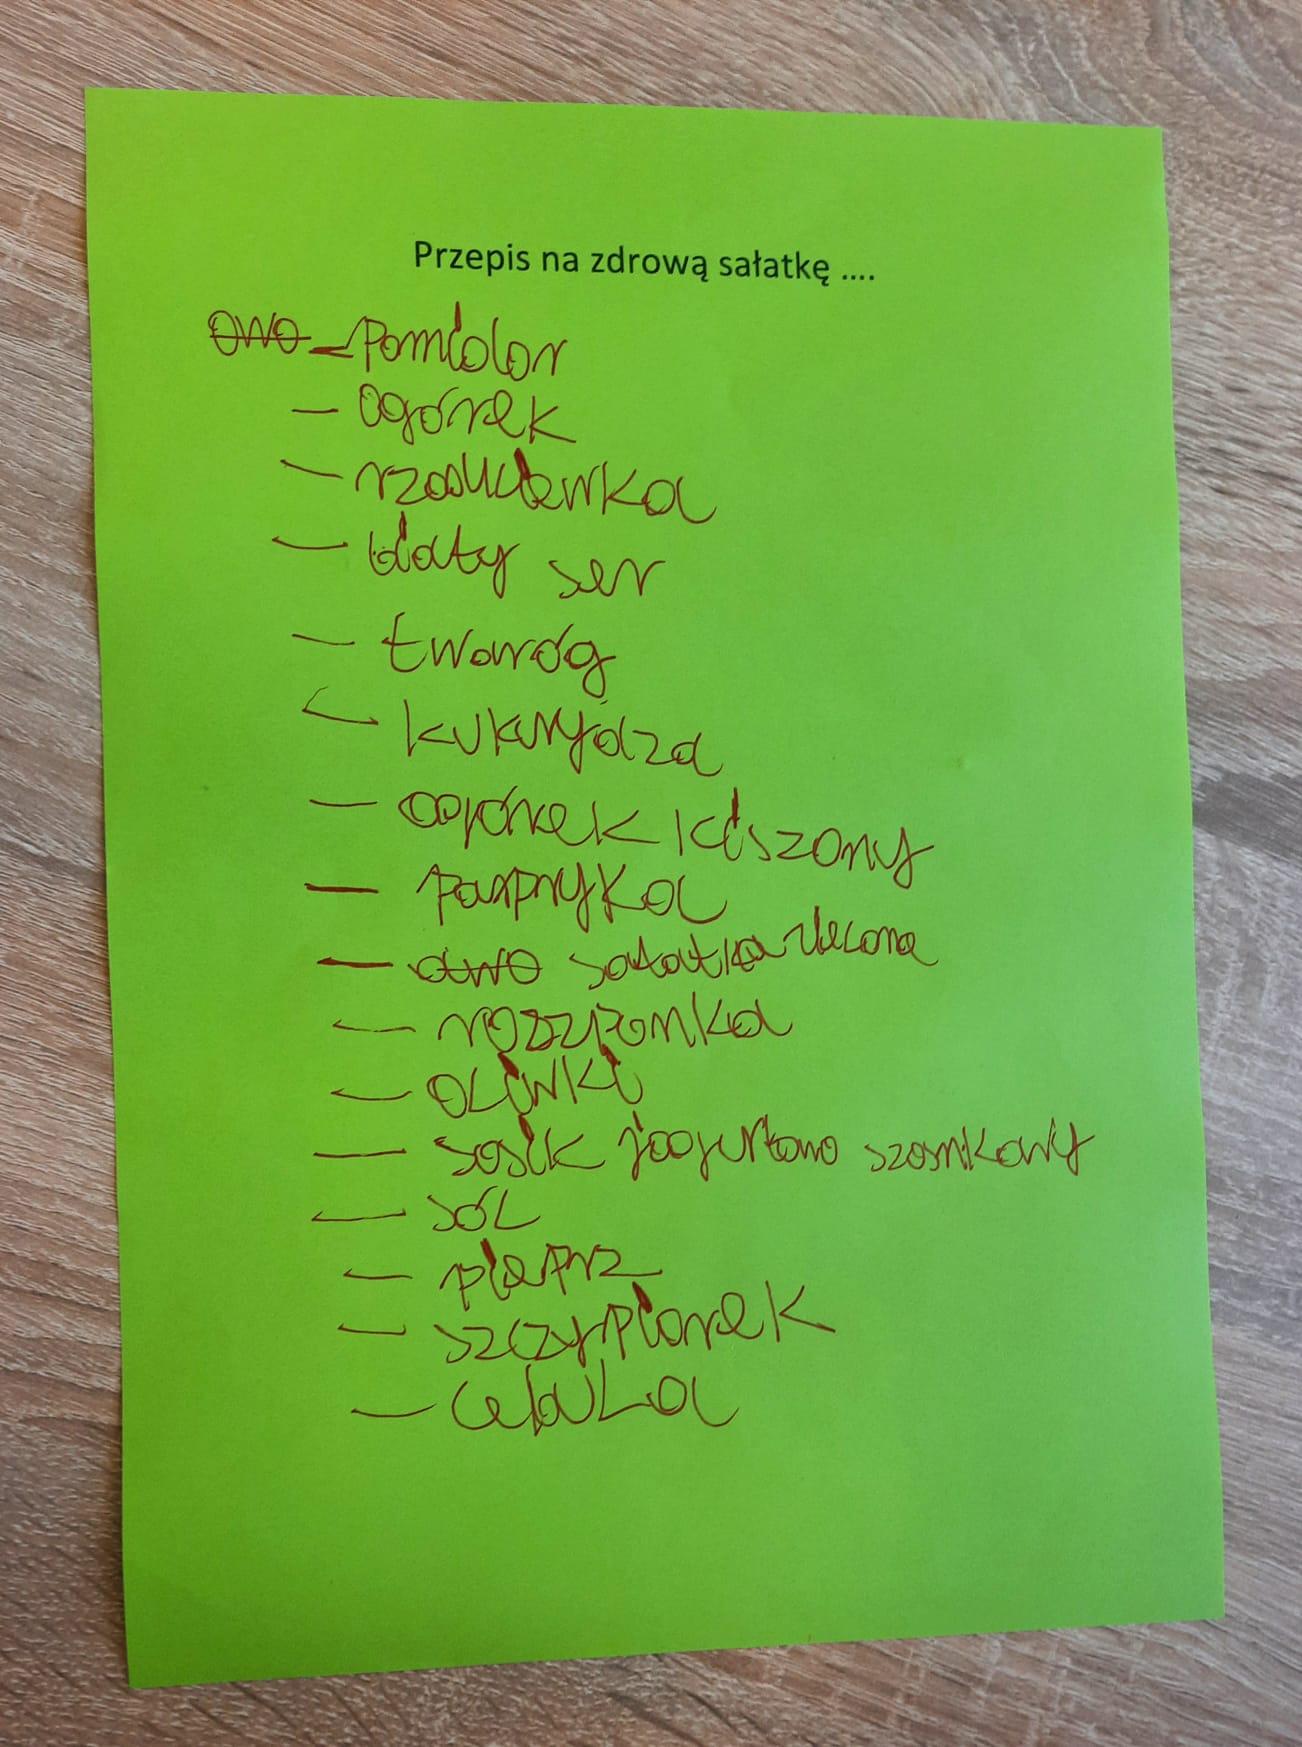 Przepis na zdrową sałatkę ....
owo - pomidor
- ogórek
- rzodkiewka
- biały ser
- twaróg
- kukurydza
- ogórek kiszony
- papryka
- owo sałatka zielona
- roszponka
- oliwki
- sosik jogurtowo szosnkowy
- sól
- pieprz
- szczypiorek
- cebula